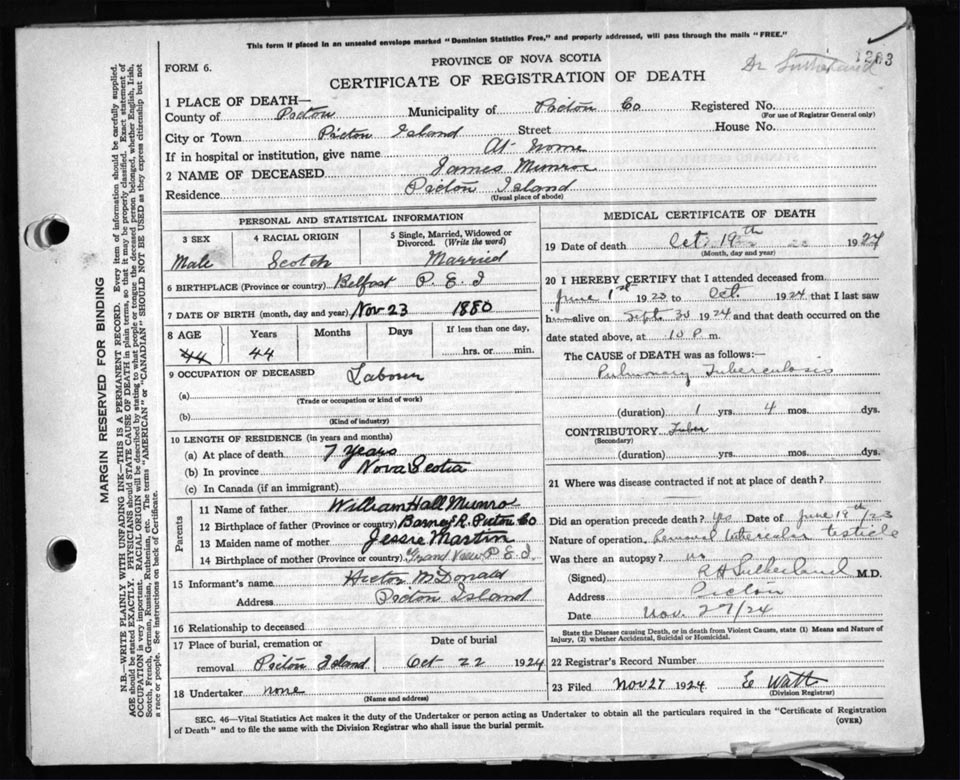 This form if placed in an unsealed envelope marked "Dominion Statistics Free," and properly addressed, will pass through the mails "FREE."
Dr Sutherland 1203
FORM 6.
PROVINCE OF NOVA SCOTIA
CERTIFICATE OF REGISTRATION OF DEATH
1 PLACE OF DEATH—
County of Pictou Municipality of Pictou Co Registered No.
(For use of Registrar General only)
City or Town Pictou Island Street House No.
If in hospital or institution, give name At home
2 NAME OF DECEASED James Munro
Residence Pictou Island
(Usual place of abode)
PERSONAL AND STATISTICAL INFORMATION
3 SEX 4 RACIAL ORIGIN 5 Single, Married, Widowed or Divorced. (Write the word)
Male Scotch Married
6 BIRTHPLACE (Province or country) Belfast P. E. I
7 DATE OF BIRTH (month, day and year) Nov 23 1880
8 AGE Years Months Days If less than one day,
44 44 hrs. or min.
9 OCCUPATION OF DECEASED Labourer
(a)
(Trade or occupation or kind of work)
(b)
(Kind of industry)
10 LENGTH OF RESIDENCE (in years and months)
(a) At place of death 7 years
(b) In province Nova Scotia
(c) In Canada (if an immigrant)
Parents
11 Name of father William Hall Munro
12 Birthplace of father (Province or country) Barney R. Pictou Co
13 Maiden name of mother Jessie Martin
14 Birthplace of mother (Province or country) Grand View P.E.I.
15 Informant's name Hector McDonald
Address Pictou Island
16 Relationship to deceased
17 Place of burial, cremation or Date of burial
removal Pictou Island Oct 22 1924
18 Undertaker none
(Name and address)
MEDICAL CERTIFICATE OF DEATH
19 Date of death Oct. 19th 1924
(Month, day and year)
20 I HEREBY CERTIFY that I attended deceased from
June 1st 1923 to Oct. 1924 that I last saw
h alive on Sept 30 1924 and that death occurred on the
date stated above, at 10 P. m.
The CAUSE of DEATH was as follows:—
Pulmonary Tuberculosis
(duration) 1 yrs. 4 mos. dys.
CONTRIBUTORY Tuber
(Secondary)
(duration) yrs. mos. dys.
21 Where was disease contracted if not at place of death?
Did an operation precede death? Yes Date of June 19th/23
Nature of operation Removal tubercular testicle
Was there an autopsy? no
(Signed) R H Sutherland M.D.
Address Pictou
Date Nov. 27/24
State the Disease causing Death, or in death from Violent Causes, state (1) Means and Nature of
Injury, (2) whether Accidental, Suicidal or Homicidal.
22 Registrar's Record Number
23 Filed Nov 27 1924 E Watt
(Division Registrar)
SEC. 46—Vital Statistics Act makes it the duty of the Undertaker or person acting as Undertaker to obtain all the particulars required in the "Certificate of Registration
of Death" and to file the same with the Division Registrar who shall issue the burial permit. (OVER)
MARGIN RESERVED FOR BINDING
N.B.—WRITE PLAINLY WITH UNFADING INK—THIS IS A PERMANENT RECORD. Every item of information should be carefully supplied.
AGE should be stated EXACTLY. PHYSICIANS should STATE CAUSE OF DEATH in plain terms, so that it may be properly classified. Exact statement of
OCCUPATION is very important. RACIAL ORIGIN will be described by stating to what people or tongue the deceased person belonged, whether English, Irish,
Scotch, French, German, Russian, Ruthenian, etc. The terms "AMERICAN" or "CANADIAN" SHOULD NOT BE USED as they express citizenship but not
a race or people. See instructions on back of Certificate.